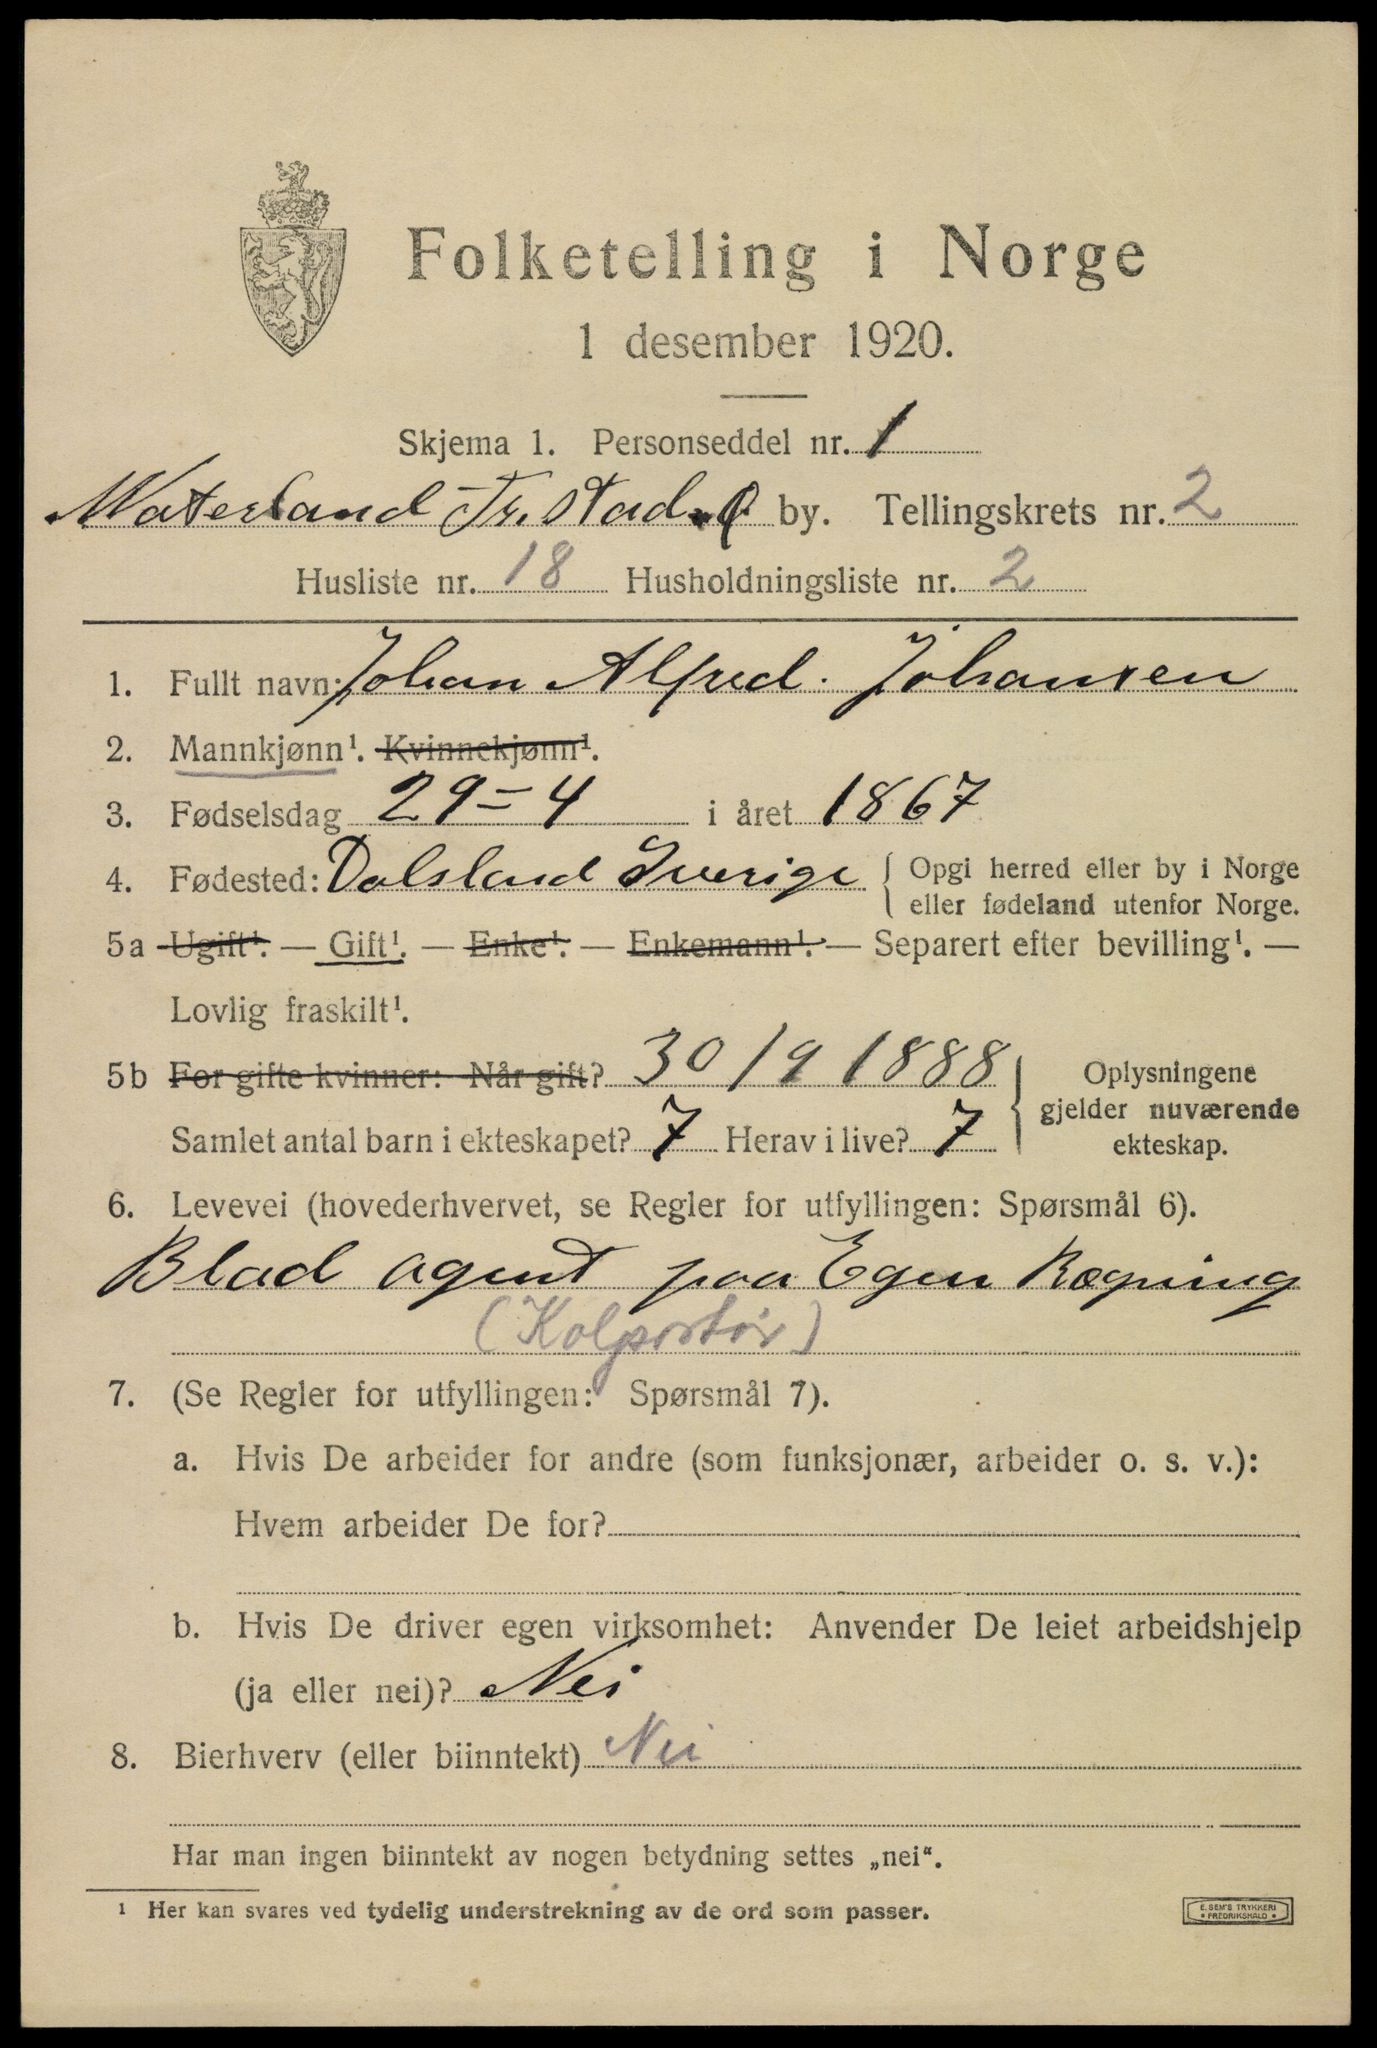 Folketelling i Norge
1 desember 1920.
Skjema 1. Personseddel nr. 1
Waterland Fr.stad by. Tellingskrets nr. 2
Husliste nr. 18 Husholdningsliste nr. 2
1. Fullt navn: Johan Alfred Johansen
2. Mannkjønn¹. Kvinnekjønn¹.
3. Fødselsdag 29=4 i året 1867
4. Fødested: Dalsland Sverige { Opgi herred eller by i Norge
eller fødeland utenfor Norge.
5a Ugift¹. — Gift¹. — Enke¹. — Enkemann¹. — Separert efter bevilling¹. —
Lovlig fraskilt¹.
5b For gifte kvinner: Når gift? 30/9 1888 } Oplysningene
gjelder nuværende
Samlet antal barn i ekteskapet? 7 Herav i live? 7 ekteskap.
6. Levevei (hovederhvervet, se Regler for utfyllingen: Spørsmål 6).
Blad agent paa Egen Rægning
(Kolportør)
7. (Se Regler for utfyllingen: Spørsmål 7).
a. Hvis De arbeider for andre (som funksjonær, arbeider o. s. v.):
Hvem arbeider De for?
b. Hvis De driver egen virksomhet: Anvender De leiet arbeidshjelp
(ja eller nei)? Nei
8. Bierhverv (eller biinntekt) Nei
Har man ingen biinntekt av nogen betydning settes „nei“.
¹ Her kan svares ved tydelig understrekning av de ord som passer.
E. SEM'S TRYKKERI
• FREDRIKSHALD •